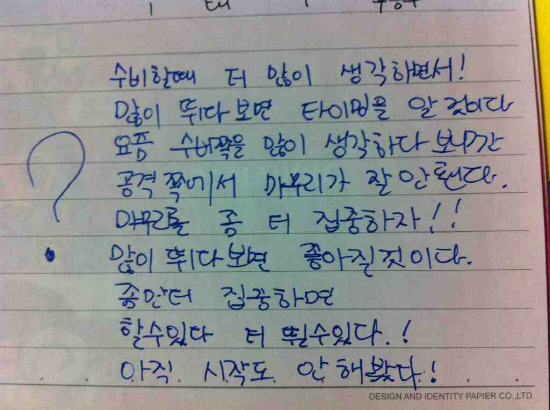 수비할때 터 많이 생각하면서!
많이 뛰다보면 타이밍을 알것이다
요즘 수비쪽을 많이 생각하다 보니간
공격쪽에서 마무리가 잘 안됀다.
?
마무리를 좀 터 집중하자!!
많이 뛰다보면 좋아질것이다.
좀만터 집중하면
할수있다 터 뛸수있다.!
아직 시작도 안해봤다!
DESIGN AND IDENTITY PAPIER CO.,LTD.